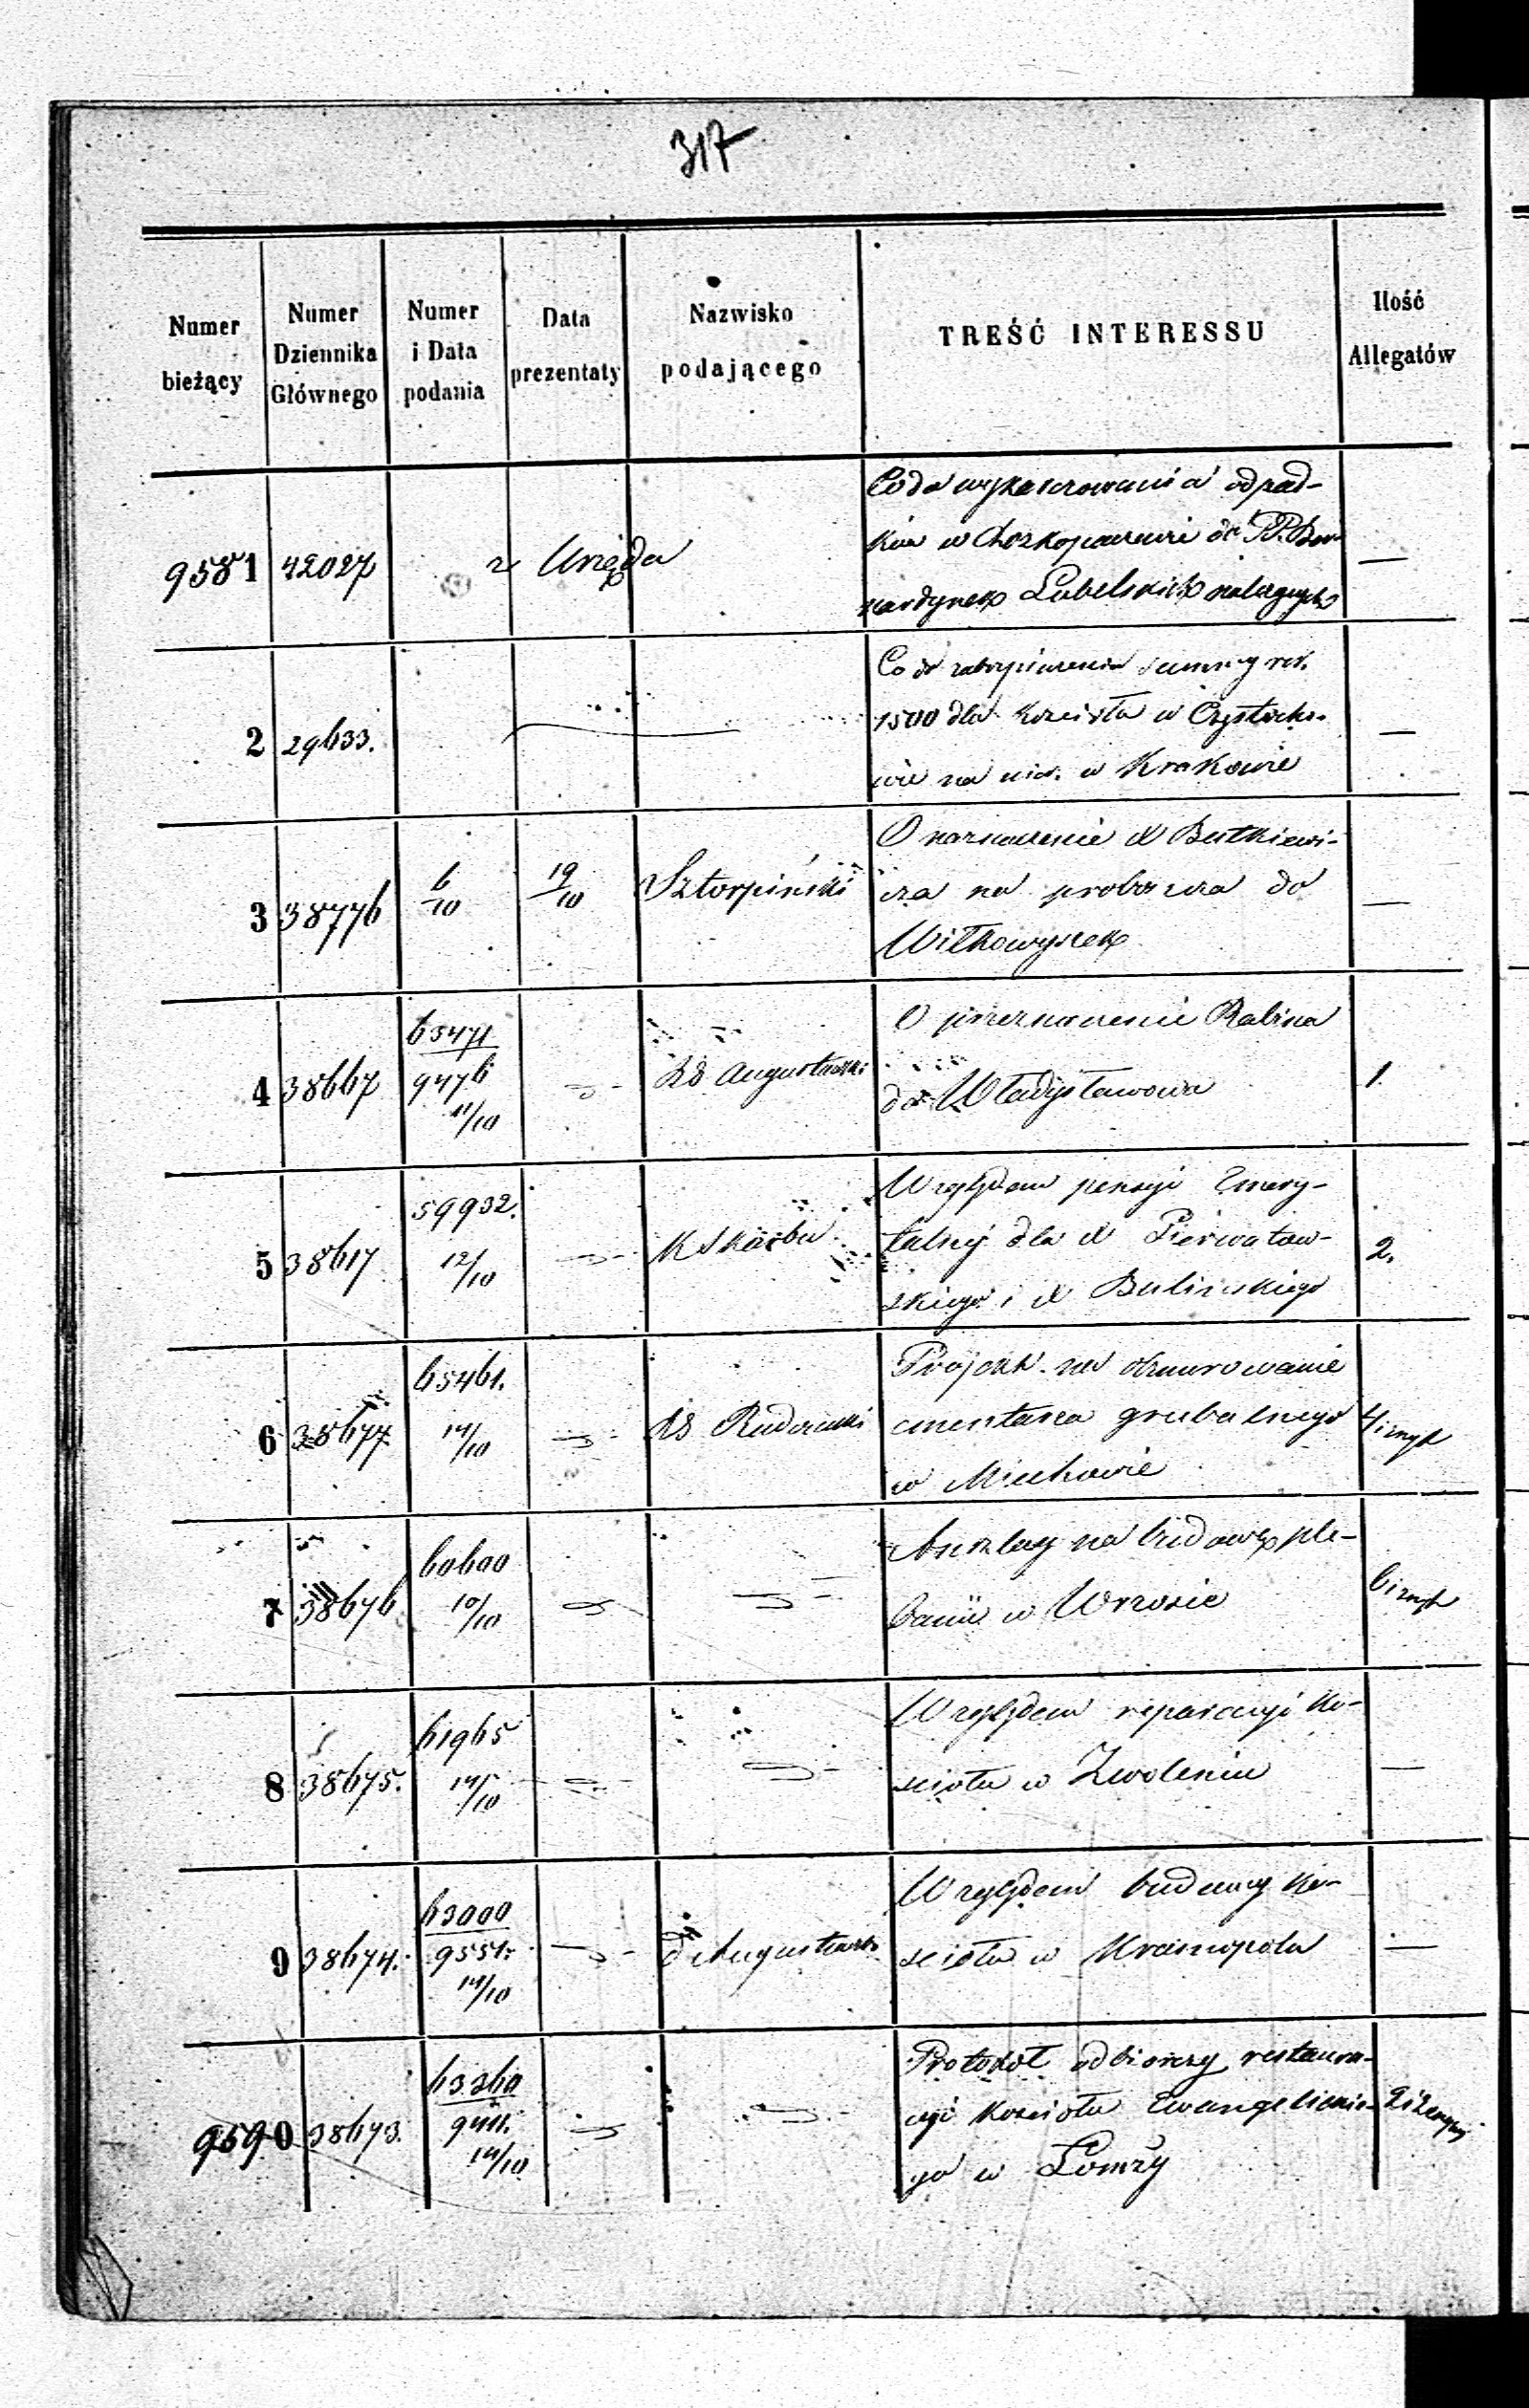 317
Numer bieżący
Numer Dziennika Głównego
Numer i Data podania
Data prezentaty
Nazwisko podającego
TREŚĆ INTERESSU
Ilość Allegatów
9581 42027 z Urzędu
Co do wykaserowania odpad-
ków w do PP. Ber-
nardynek Lubelskich należnych —
2 29633. —
Co do zabezpieczenia summy rs.
1500 dla Kościoła w Częstocho-
wie na w Krakowie —
3 38776 6/10 19/10 Sztorpiński
O naznaczenie X Butkiewi-
cza na proboszcza do
Wiłkowyszek —
4 38667 63471 9476 11/10 — RG Augustowski
O przeznaczenie Rabina
do Władysławowa 1.
5 38617 59932. 12/10 — K Skarbu
Względem pensyi Emery-
talnej dla X Pierwotow-
skiego i X Bulinskiego 2.
6 38677 65461. 14/10 — RG Radomski
Projekt na obmurowanie
cmentarza grzebalnego
w Miechowie 4 i
7 38676 60600 10/10 — —
Anszlag na budowę ple-
banii w Wrzosie 6 i
8 38675. 61965 14/10 — —
Względem reparacyi ko-
scioła w Zwoleniu —
9 38674. 63000 9551. 14/10 — d Augustowski
Względem budowy ko-
scioła w Krasnopolu —
9590 38673. 63360 14/10 — —
Protokół odbiorczy restaura-
cyi Kościoła Ewangelickie-
go w Łomży 2 i